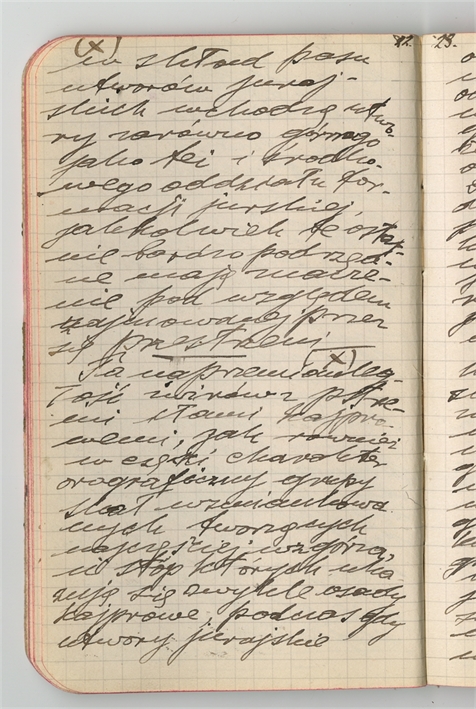 (x)
22. 23.
w skład pasu
utworów juraj-
skich wchodzą utwo-
ry zarówno górnego
jako też i środko-
wego oddziału for-
macji jurskiej,
jakkolwiek te ostat-
nie bardzo podrzęd-
ne mają znacze-
nie pod względem
zajmowanej przez
się przestrzeni
(x)
Ta naprzemianleg-
łość
mi iłami kajpro-
wemi, jak również
w części charakter
orograficzny grupy
skał wzmiankowa
nych tworzących
najczęściej wzgórza,
u stóp których uka
zują się zwykle osady
kajprowe podczas gdy
utwory jurajskie